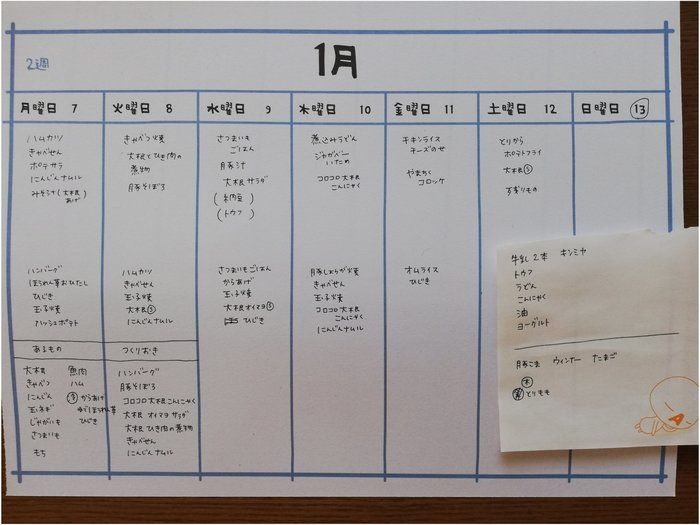 1月
2週
月曜日 7
火曜日 8
水曜日 9
木曜日 10
金曜日 11
土曜日 12
日曜日 13
ハムカツ
きゃべせん
ポテサラ
にんじんナムル
みそ汁(大根、あげ)
きゃべつ焼
大根とひき肉の
煮物
豚そぼろ
さつまいも
ごはん
豚汁
大根サラダ
(納豆)
(トウフ)
煮込みうどん
ジャガバター
いため
コロコロ大根
こんにゃく
チキンライス
チーズのせ
やまちく
コロッケ
とりから
ポテトフライ
大根
すぎりもの
ハンバーグ
ほうれん草おひたし
ひじき
玉子焼
ハッシュポテト
ハムカツ
きゃべせん
玉子焼
大根
にんじんナムル
さつまいもごはん
からあげ
玉子焼
大根オイマヨ
ひじき
豚しょうが焼
きゃべせん
玉子焼
コロコロ大根
こんにゃく
にんじんナムル
オムライス
ひじき
あるもの
つくりおき
大根
きゃべつ
にんじん
玉ネギ
じゃがいも
さつまいも
もち
魚肉
ハム
からあげ
ゆでほうれん草
ひじき
ハンバーグ
豚そぼろ
コロコロ大根こんにゃく
大根オイマヨサラダ
大根ひき肉の煮物
きゃべせん
にんじんナムル
牛乳2本 キンミヤ
トウフ
うどん
こんにゃく
油
ヨーグルト
豚こま ウィンナー たまご
木
とりもも